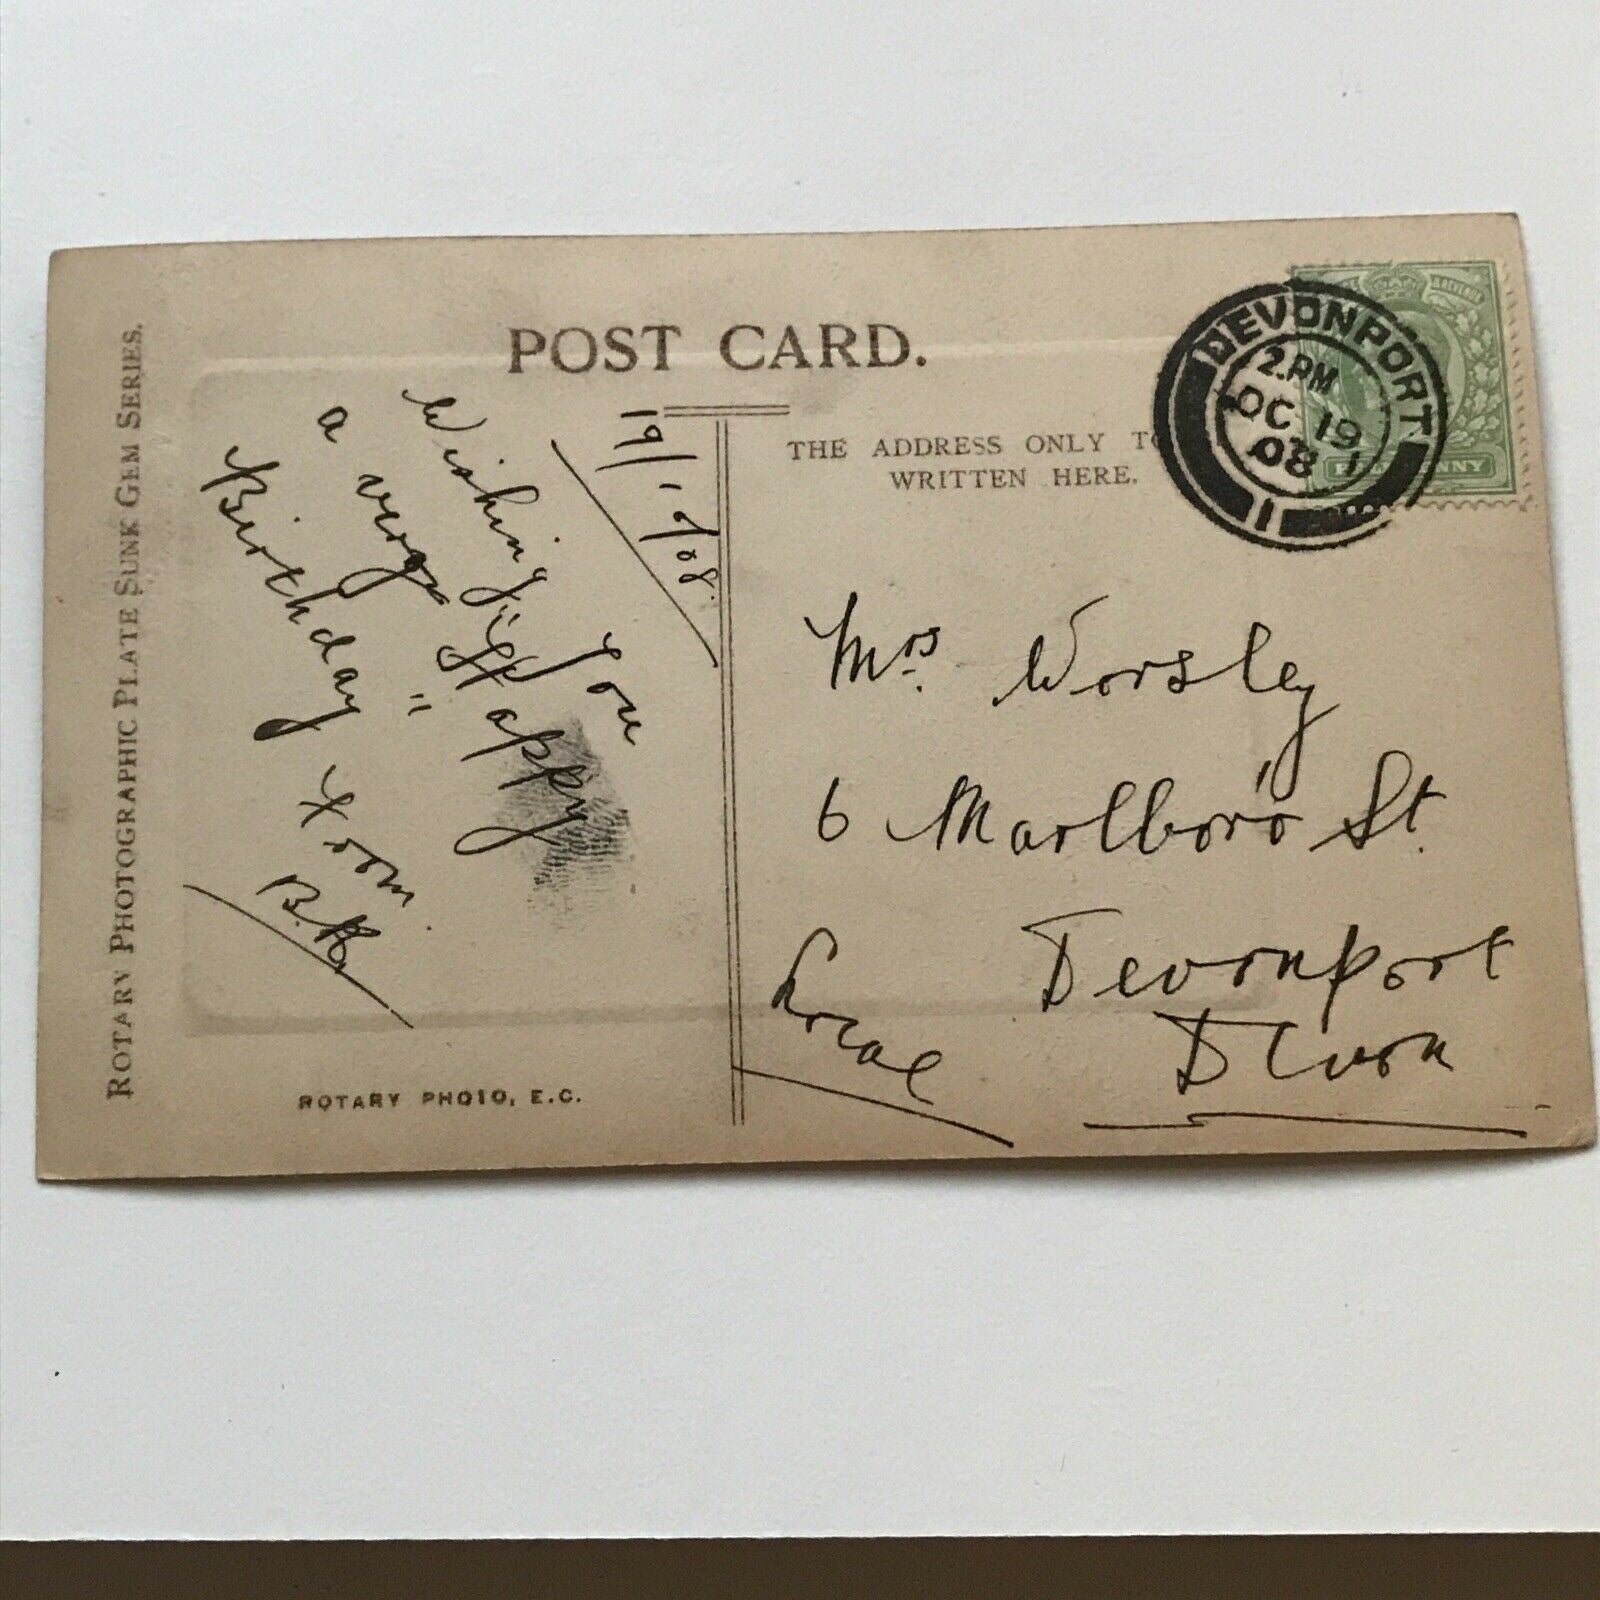 ROTARY PHOTOGRAPHIC PLATE SUNK GEM SERIES.
POST CARD.
19/10/08.
Wishing You
a very "Happy
Birthday"
from
B.H.
ROTARY PHOTO, E.C.
THE ADDRESS ONLY TO
WRITTEN HERE.
DEVONPORT
2.PM
OC 19
08
1
HALFPENNY
Mrs. Worsley
6 Marlboro' St.
Devonport
Devon
Local